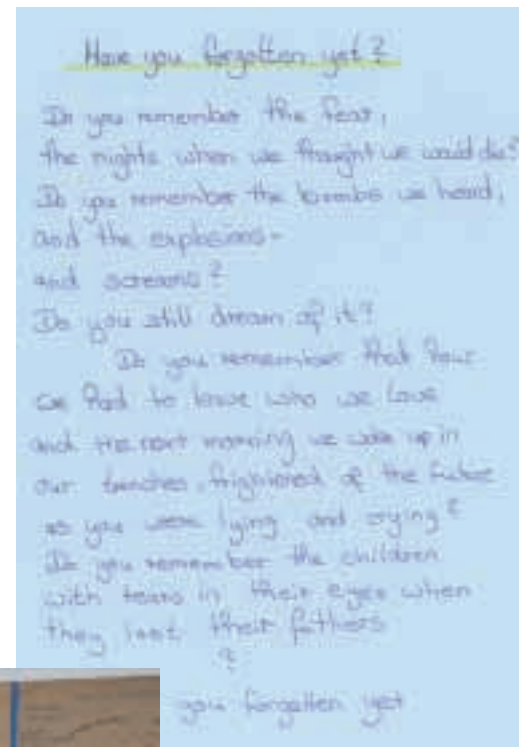 Have you forgotten yet?
Do you remember the fear,
the nights when we thought we would die?
Do you remember the bombs we heard,
and the explosions -
and screams?
Do you still dream of it?
Do you remember that hour
we had to leave who we love
and the next morning we woke up in
our trenches, frightened of the future
as you were lying and crying?
Do you remember the children
with tears in their eyes when
they lost their fathers
?
you forgotten yet